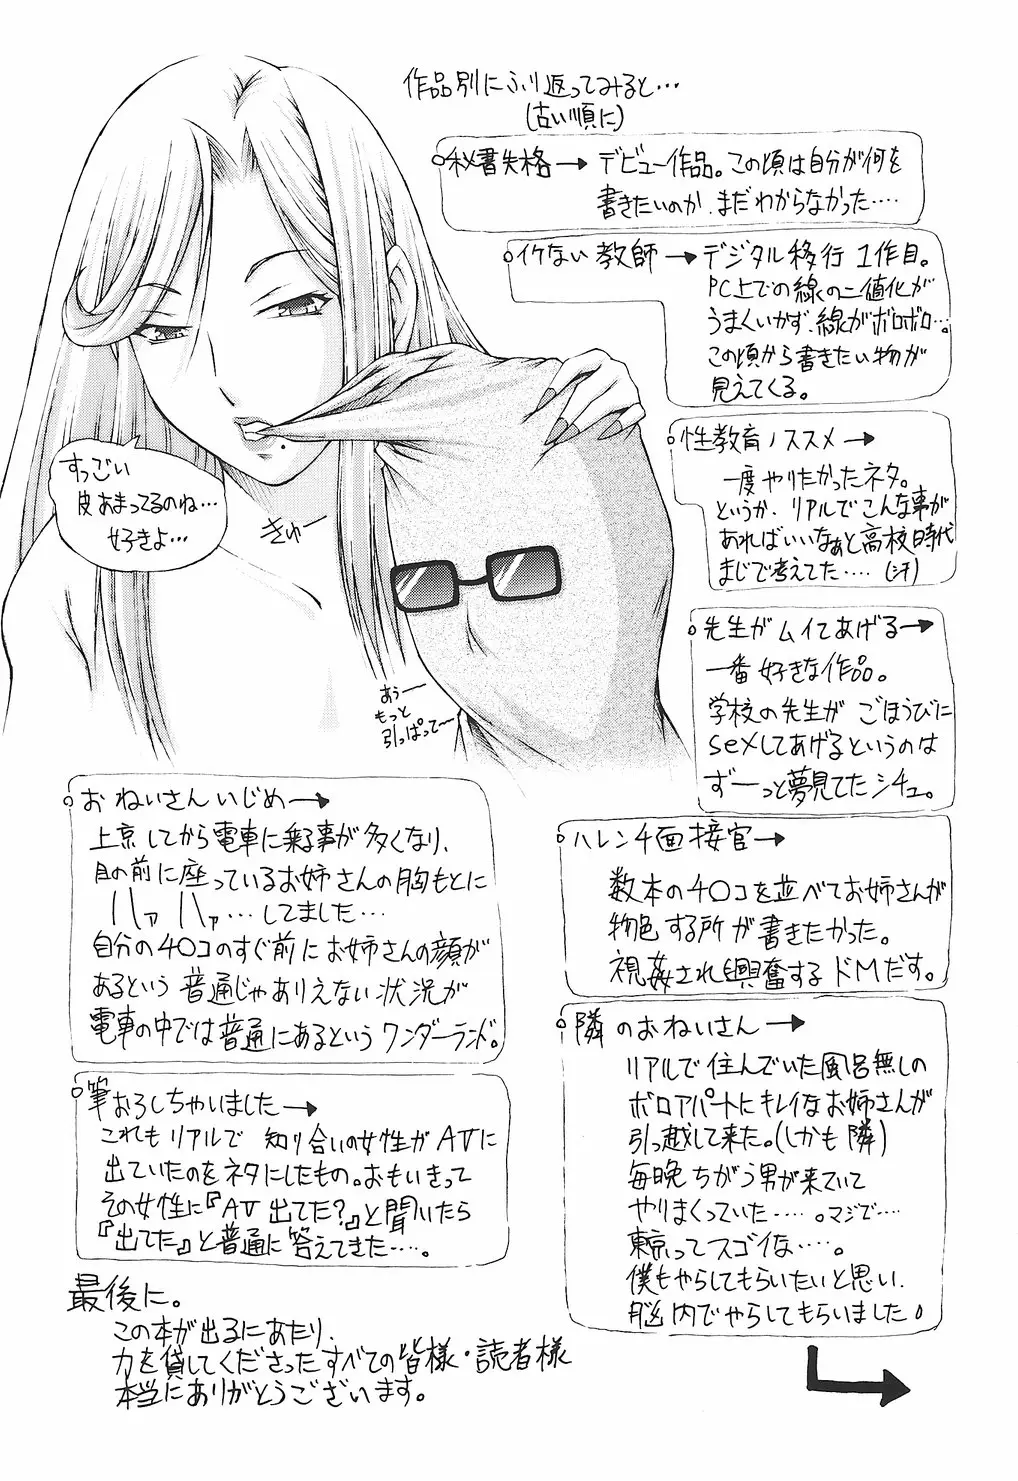 作品別にふり返ってみると…
(古い順に)
秘書失格→ デビュー作品。この頃は自分が何を
書きたいのか、まだわからなかった……
イケない教師→デジタル移行1作目。
PC上での線の二値化が
うまくいかず、線がボロボロ…。
この頃から書きたい物が
見えてくる。
性教育ノススメ→
一度やりたかったネタ。
というか、リアルでこんな事が
あればいいなぁと高校時代
まじで考えてた……(汗)
先生がムイてあげる→
一番好きな作品。
学校の先生が ごほうびに
sexしてあげるというのは
ずーっと夢見てたシチュ。
すっごい
皮あまってるのね…
好きよ…
きゅー
あぅー
もっと
引っぱって〜
おねいさんいじめ→
上京してから電車に乗る事が多くなり、
目の前に座っているお姉さんの胸もとに
ハァ ハァ…してました…
自分のチ○コのすぐ前にお姉さんの顔が
あるという普通じゃありえない状況が
電車の中では普通にあるというワンダーランド。
筆おろしちゃいました→
これもリアルで 知り合いの女性がAVに
出ていたのをネタにしたもの。おもいきって
その女性に『AV出てた?』と聞いたら
『出てた』と普通に答えてきた……。
ハレンチ面接官→
数本のチ○コを並べてお姉さんが
物色する所が書きたかった。
視姦され興奮するドMだす。
隣のおねいさん→
リアルで住んでいた風呂無しの
ボロアパートにキレイなお姉さんが
引っ越して来た。(しかも隣)
毎晩ちがう男が来ていて
やりまくっていた……。マジで…
東京ってスゴイな……。
僕もやらしてもらいたいと思い、
脳内でやらしてもらいました。
最後に。
この本が出るにあたり、
力を貸してくださったすべての皆様・読者様
本当にありがとうございます。